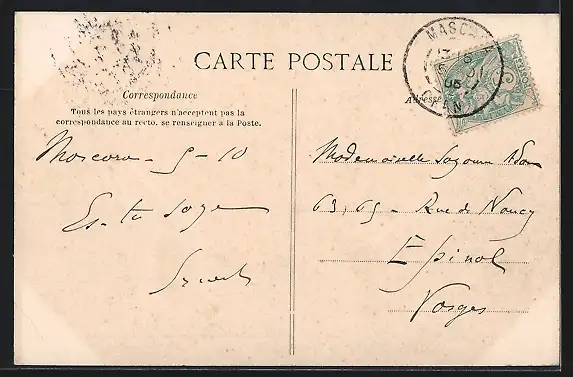 CARTE POSTALE
Correspondance
Tous les pays étrangers n'acceptent pas la
correspondance au recto. se renseigner à la Poste.
Mascara - 5-10
Es-tu sage
MASCARA
ORAN
Adresse
Mademoiselle
63, 65 - Rue de Nancy
Epinal
Vosges